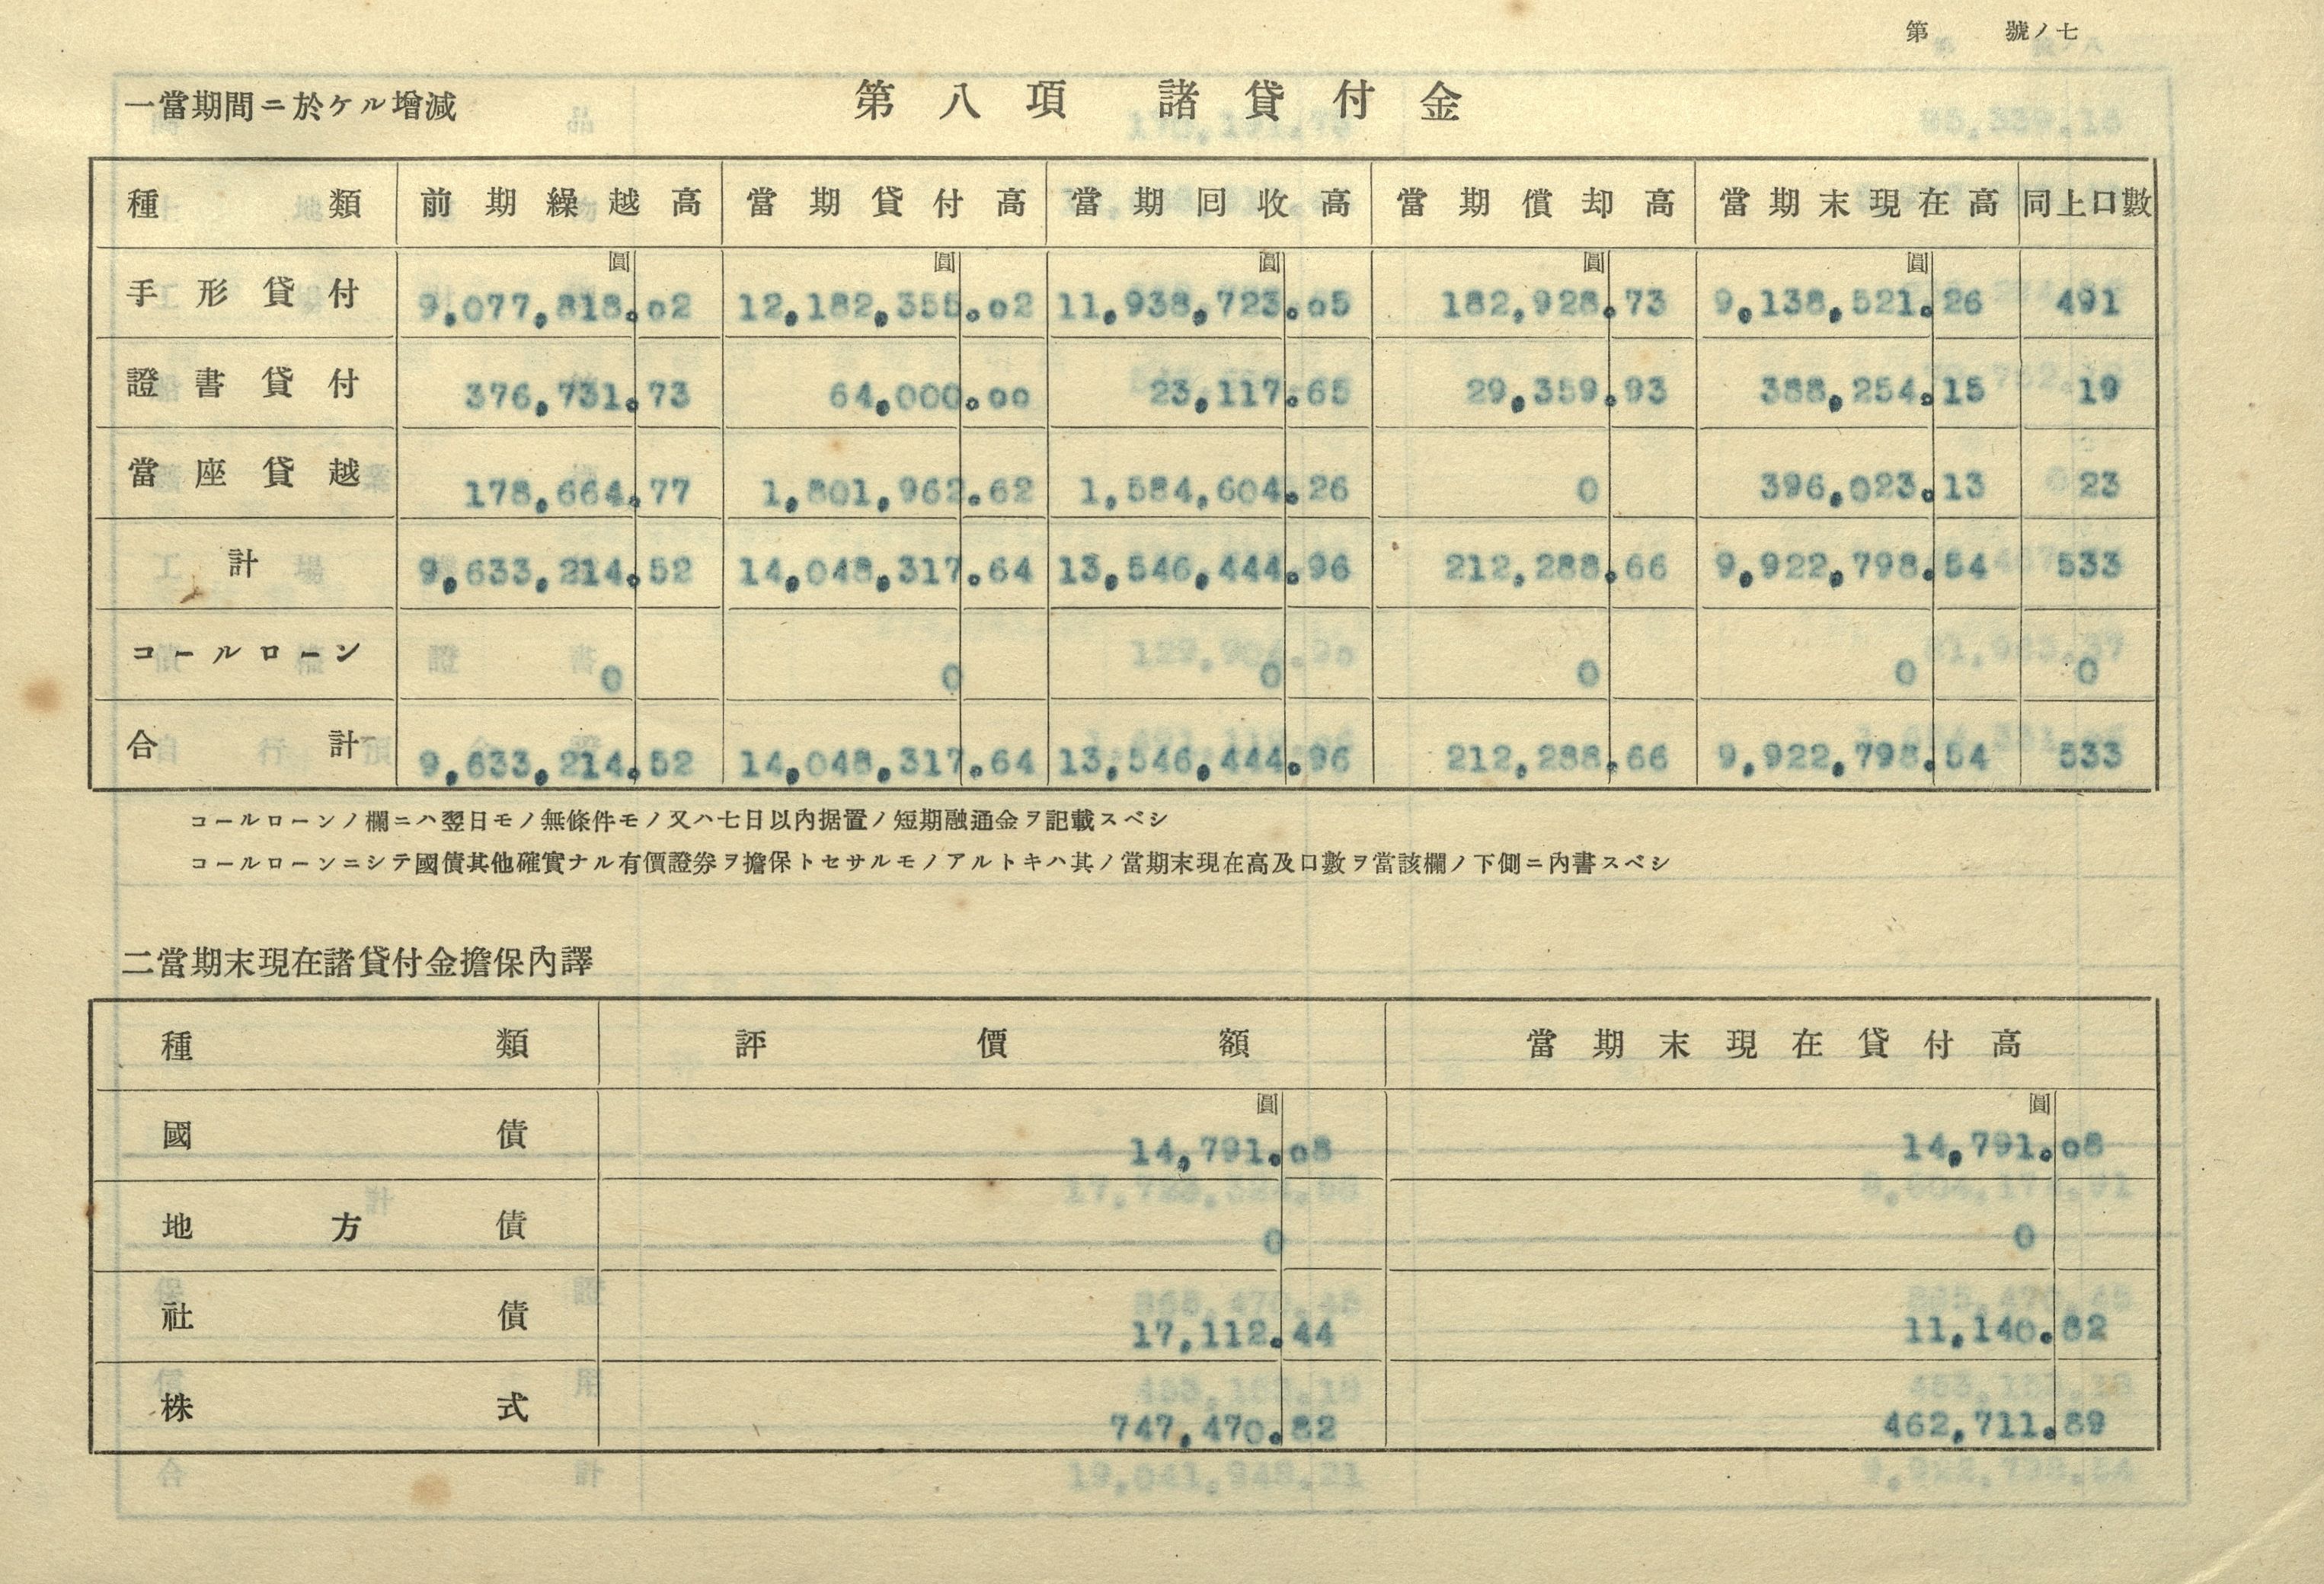 第 號ノ七
第八項 諸貸付金
一當期間ニ於ケル增減
種類 前期繰越高 當期貸付高 當期回收高 當期償却高 當期末現在高 同上口數
圓 圓 圓 圓 圓
手形貸付 9,077,818.02 12,182,355.02 11,938,723.05 182,928.73 9,138,521.26 491
證書貸付 376,731.73 64,000.00 23,117.65 29,359.93 388,254.15 19
當座貸越 178,664.77 1,801,962.62 1,584,604.26 0 396,023.13 23
計 9,633,214.52 14,048,317.64 13,546,444.96 212,288.66 9,922,798.54 533
コールローン 0 0 0 0 0 0
合計 9,633,214.52 14,048,317.64 13,546,444.96 212,288.66 9,922,798.54 533
コールローンノ欄ニハ翌日モノ無條件モノ又ハ七日以內据置ノ短期融通金ヲ記載スベシ
コールローンニシテ國債其他確實ナル有價證券ヲ擔保トセサルモノアルトキハ其ノ當期末現在高及口數ヲ當該欄ノ下側ニ內書スベシ
二當期末現在諸貸付金擔保內譯
種類 評價額 當期末現在貸付高
圓 圓
國債 14,791.08 14,791.08
地方債 0 0
社債 17,112.44 11,140.82
株式 747,470.82 462,711.89